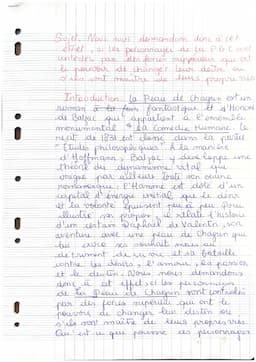 Sujet. Nous nous demandons donc à cet
effet, si les personnages de la P.D.C sont
contrôlés par des forces supérieures qui ont
le pouvoir de changer leur destin ou
s'ils sont maîtres de leurs propres vies
Introduction. La Peau de Chagrin est un
roman à la fois fantastique et d'Honoré
de Balzac qui appartient à l'ensemble
monumental "La Comédie Humaine". Le
récit de 1831 est classé dans la partie
"Etudes philosophiques". A la manière
d'Hoffmann, Balzac y développe une
théorie du dynamisme vital qui
irrigue par ailleurs toute son œuvre
romanesque: l'Homme est doté d'un
capital d'énergie vital que le désir
et la volonté épuisent peu à peu. Pour
illustrer ses propos, il relate l'histoire
d'un certain Raphaël de Valentin, son
aventure avec une peau de chagrin qui
lui exauce ses souhaits mais au
détriment de sa vie, et sa bataille
contre les désirs, l'amour, la pensée
et le destin. Nous nous demandons
donc à cet effet, si les personnages
de La Peau de Chagrin sont contrôlés
par des forces supérieures qui ont le
pouvoir de changer leur destin ou
s'ils sont maîtres de leurs propres vies.
Qu'est ce que pousse les personnages